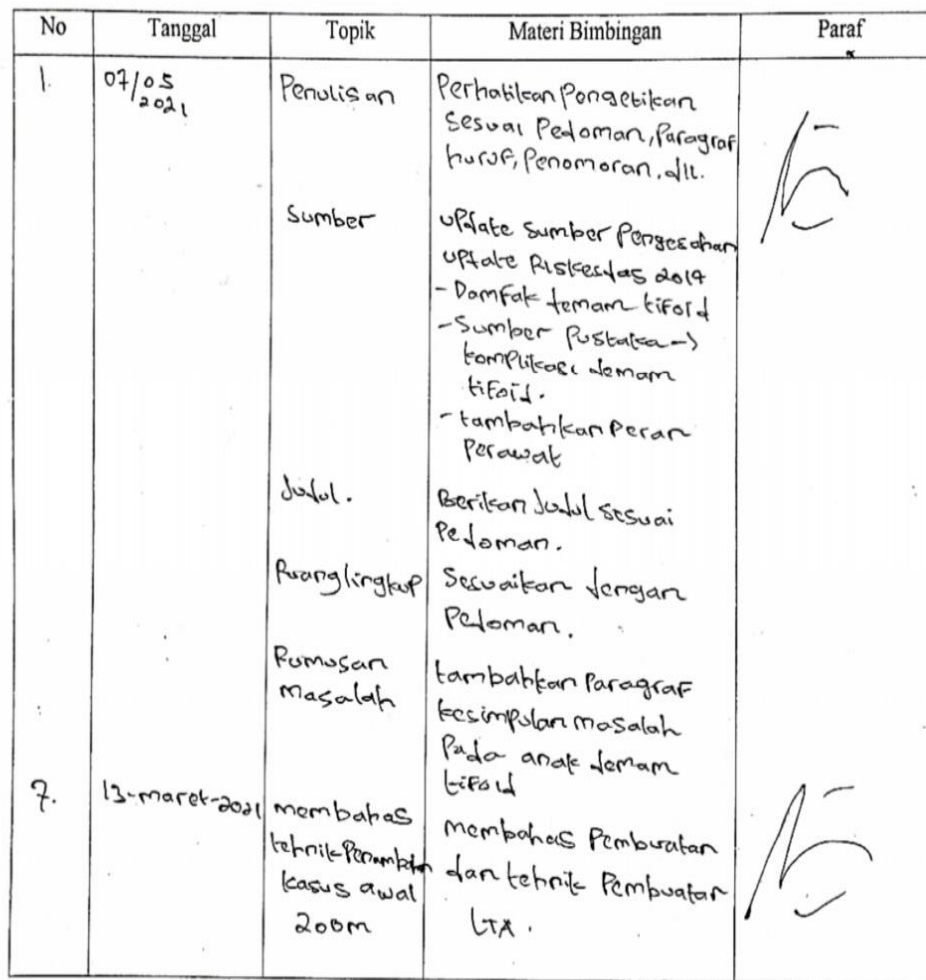 No Tanggal Topik Materi Bimbingan Paraf
1. 07/05 2021 Penulisan Perhatikan Pengetikan
sesuai Pedoman, Paragraf
huruf, Penomoran, dll.
Sumber update sumber Pengesahan
update Riskesdas 2019
- Damfak demam tifoid
- Sumber Pustaka ->
komplikasi demam
tifoid.
- tambahkan Peran
Perawat
Judul. Berikan Judul sesuai
Pedoman.
Ruang lingkup Sesuaikan dengan
Pedoman.
Rumusan tambahkan Paragraf
masalah kesimpulan masalah
Pada anak demam
tifoid
2. 13-maret-2021 membahas membahas Pembuatan
tehnik dan tehnik Pembuatan
kasus awal LTA.
zoom